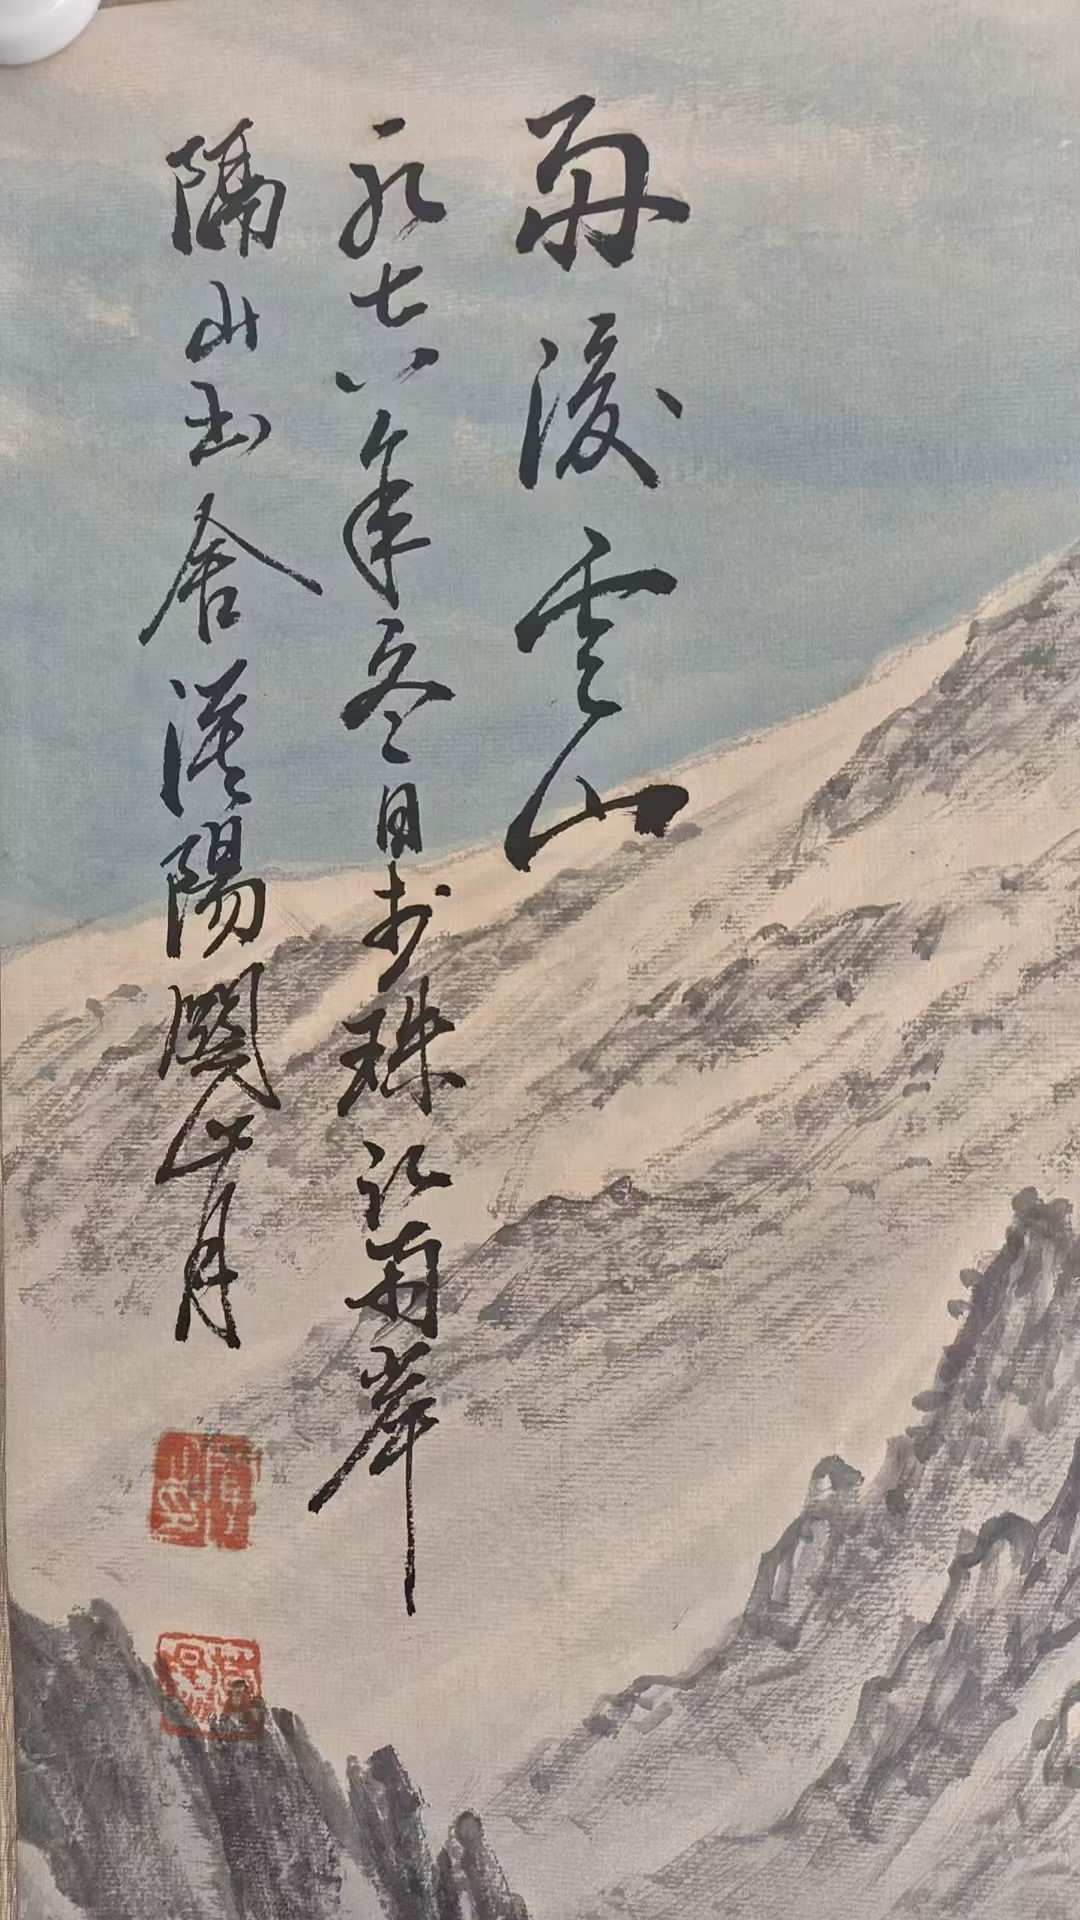 雨後雲山
一九七八年冬日於珠江南岸
隔山書舍漠陽關山月